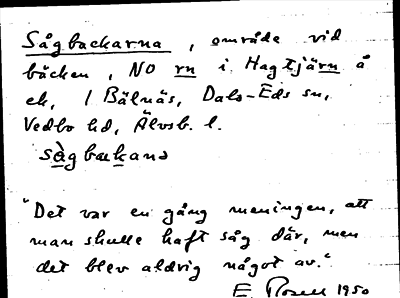 Sågbackarna, område vid
bäcken, NO rn i Hagtjärn å
ek, 1 Bälnäs, Dals-Eds sn,
Vedbo hd, Älvsb. l.
sàgbakana
"Det var en gång meningen, att
man skulle haft såg där, men
det blev aldrig något av."
E. Rosell 1950